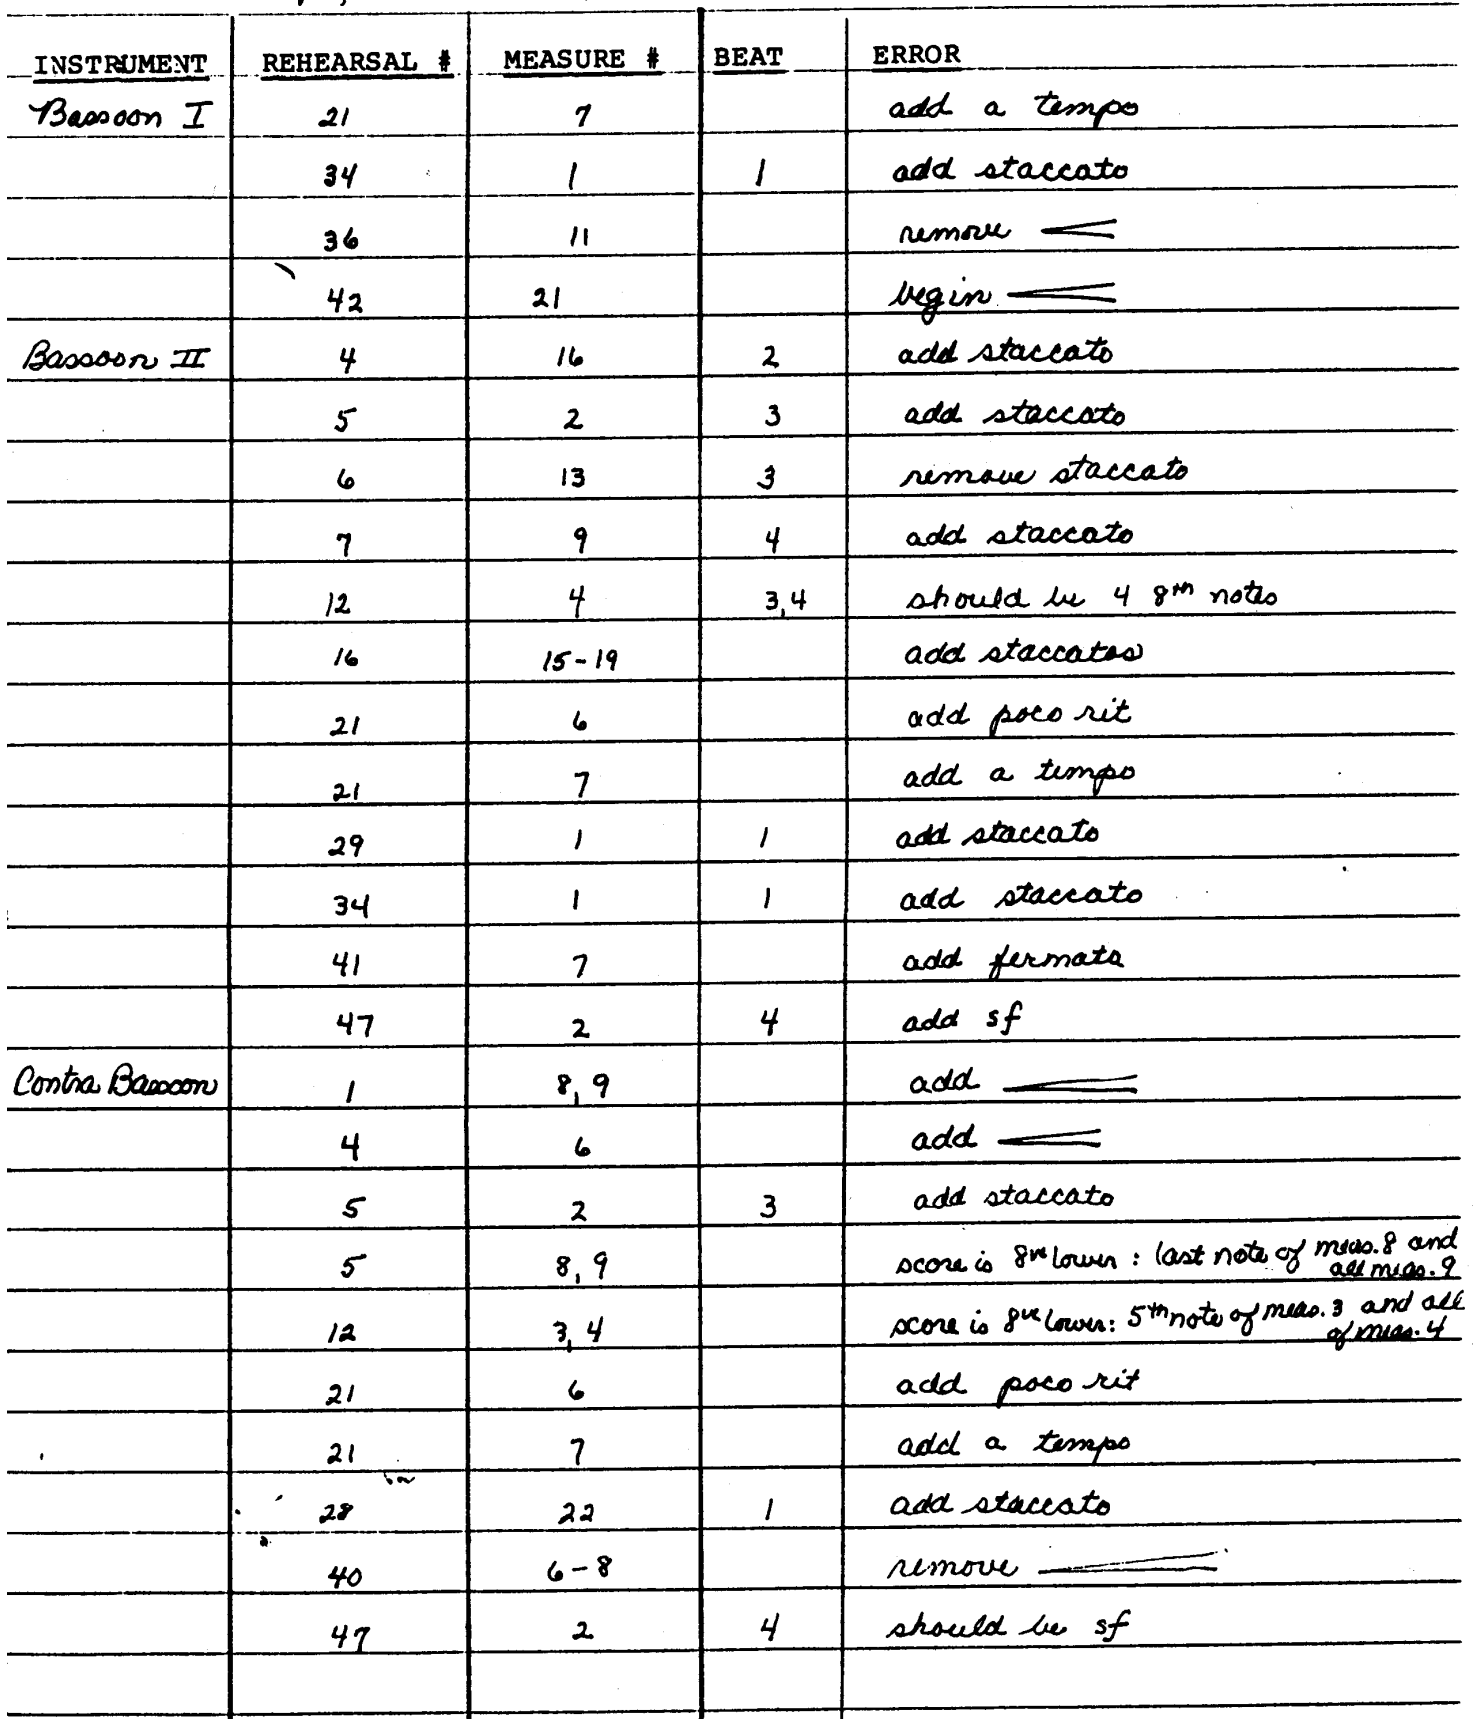 INSTRUMENT REHEARSAL # MEASURE # BEAT ERROR
Bassoon I 21 7 add a tempo
34 1 1 add staccato
36 11 remove
42 21 begin
Bassoon II 4 16 2 add staccato
5 2 3 add staccato
6 13 3 remove staccato
7 9 4 add staccato
12 4 3,4 should be 4 8th notes
16 15-19 add staccatos
21 6 add poco rit
21 7 add a tempo
29 1 1 add staccato
34 1 1 add staccato
41 7 add fermata
47 2 4 add sf
Contra Bassoon 1 8, 9 add
4 6 add
5 2 3 add staccato
5 8, 9 score is 8ve lower : last note of meas. 8 and
all meas. 9
12 3, 4 score is 8ve lower: 5th note of meas. 3 and all
of meas. 4
21 6 add poco rit
21 7 add a tempo
28 22 1 add staccato
40 6-8 remove
47 2 4 should be sf